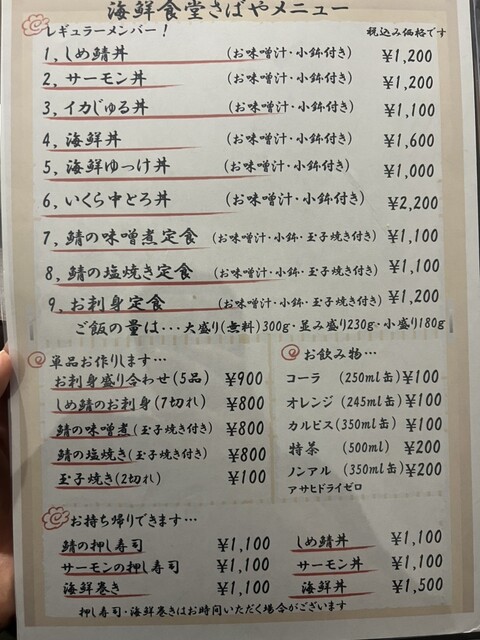 海鮮食堂さばやメニュー
レギュラーメンバー! 税込み価格です
1,しめ鯖丼 (お味噌汁・小鉢付き) ¥1,200
2,サーモン丼 (お味噌汁・小鉢付き) ¥1,200
3,イカじゅる丼 (お味噌汁・小鉢付き) ¥1,100
4,海鮮丼 (お味噌汁・小鉢付き) ¥1,600
5,海鮮ゆっけ丼 (お味噌汁・小鉢付き) ¥1,000
6,いくら中とろ丼 (お味噌汁・小鉢付き) ¥2,200
7,鯖の味噌煮定食 (お味噌汁・小鉢・玉子焼き付き) ¥1,100
8,鯖の塩焼き定食 (お味噌汁・小鉢・玉子焼き付き) ¥1,100
9,お刺身定食 (お味噌汁・小鉢・玉子焼き付き) ¥1,200
ご飯の量は…大盛り(無料)300g・並み盛り230g・小盛り180g
単品お作りします…
お刺身盛り合わせ(5品) ¥900
しめ鯖のお刺身(7切れ) ¥800
鯖の味噌煮(玉子焼き付き) ¥800
鯖の塩焼き(玉子焼き付き) ¥800
玉子焼き(2切れ) ¥100
お飲み物…
コーラ (250ml缶)¥100
オレンジ (245ml缶)¥100
カルピス(350ml缶)¥100
特茶 (500ml) ¥200
ノンアル (350ml缶)¥200
アサヒドライゼロ
お持ち帰りできます…
鯖の押し寿司 ¥1,100
サーモンの押し寿司 ¥1,100
海鮮巻き ¥1,100
しめ鯖丼 ¥1,100
サーモン丼 ¥1,100
海鮮丼 ¥1,500
押し寿司・海鮮巻きはお時間いただく場合がございます